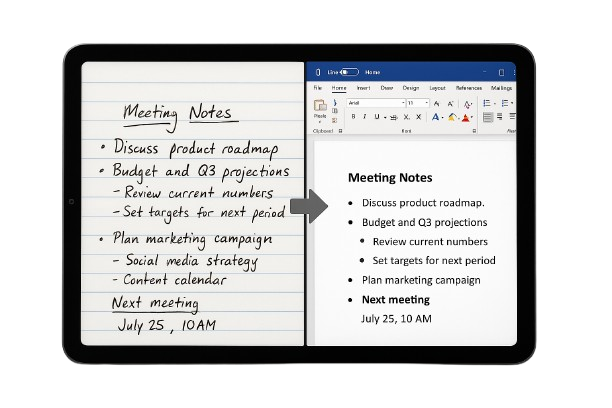 Meeting Notes
• Discuss product roadmap
• Budget and Q3 projections
– Review current numbers
– Set targets for next period
• Plan marketing campaign
– Social media strategy
– Content calendar
Next meeting
July 25, 10 AM
Line Home
File Home Insert Draw Design Layout References Mailings
Arial 11
B I U
Clipboard Font
Meeting Notes
• Discuss product roadmap.
• Budget and Q3 projections
• Review current numbers
• Set targets for next period
• Plan marketing campaign
• Next meeting
July 25, 10 AM